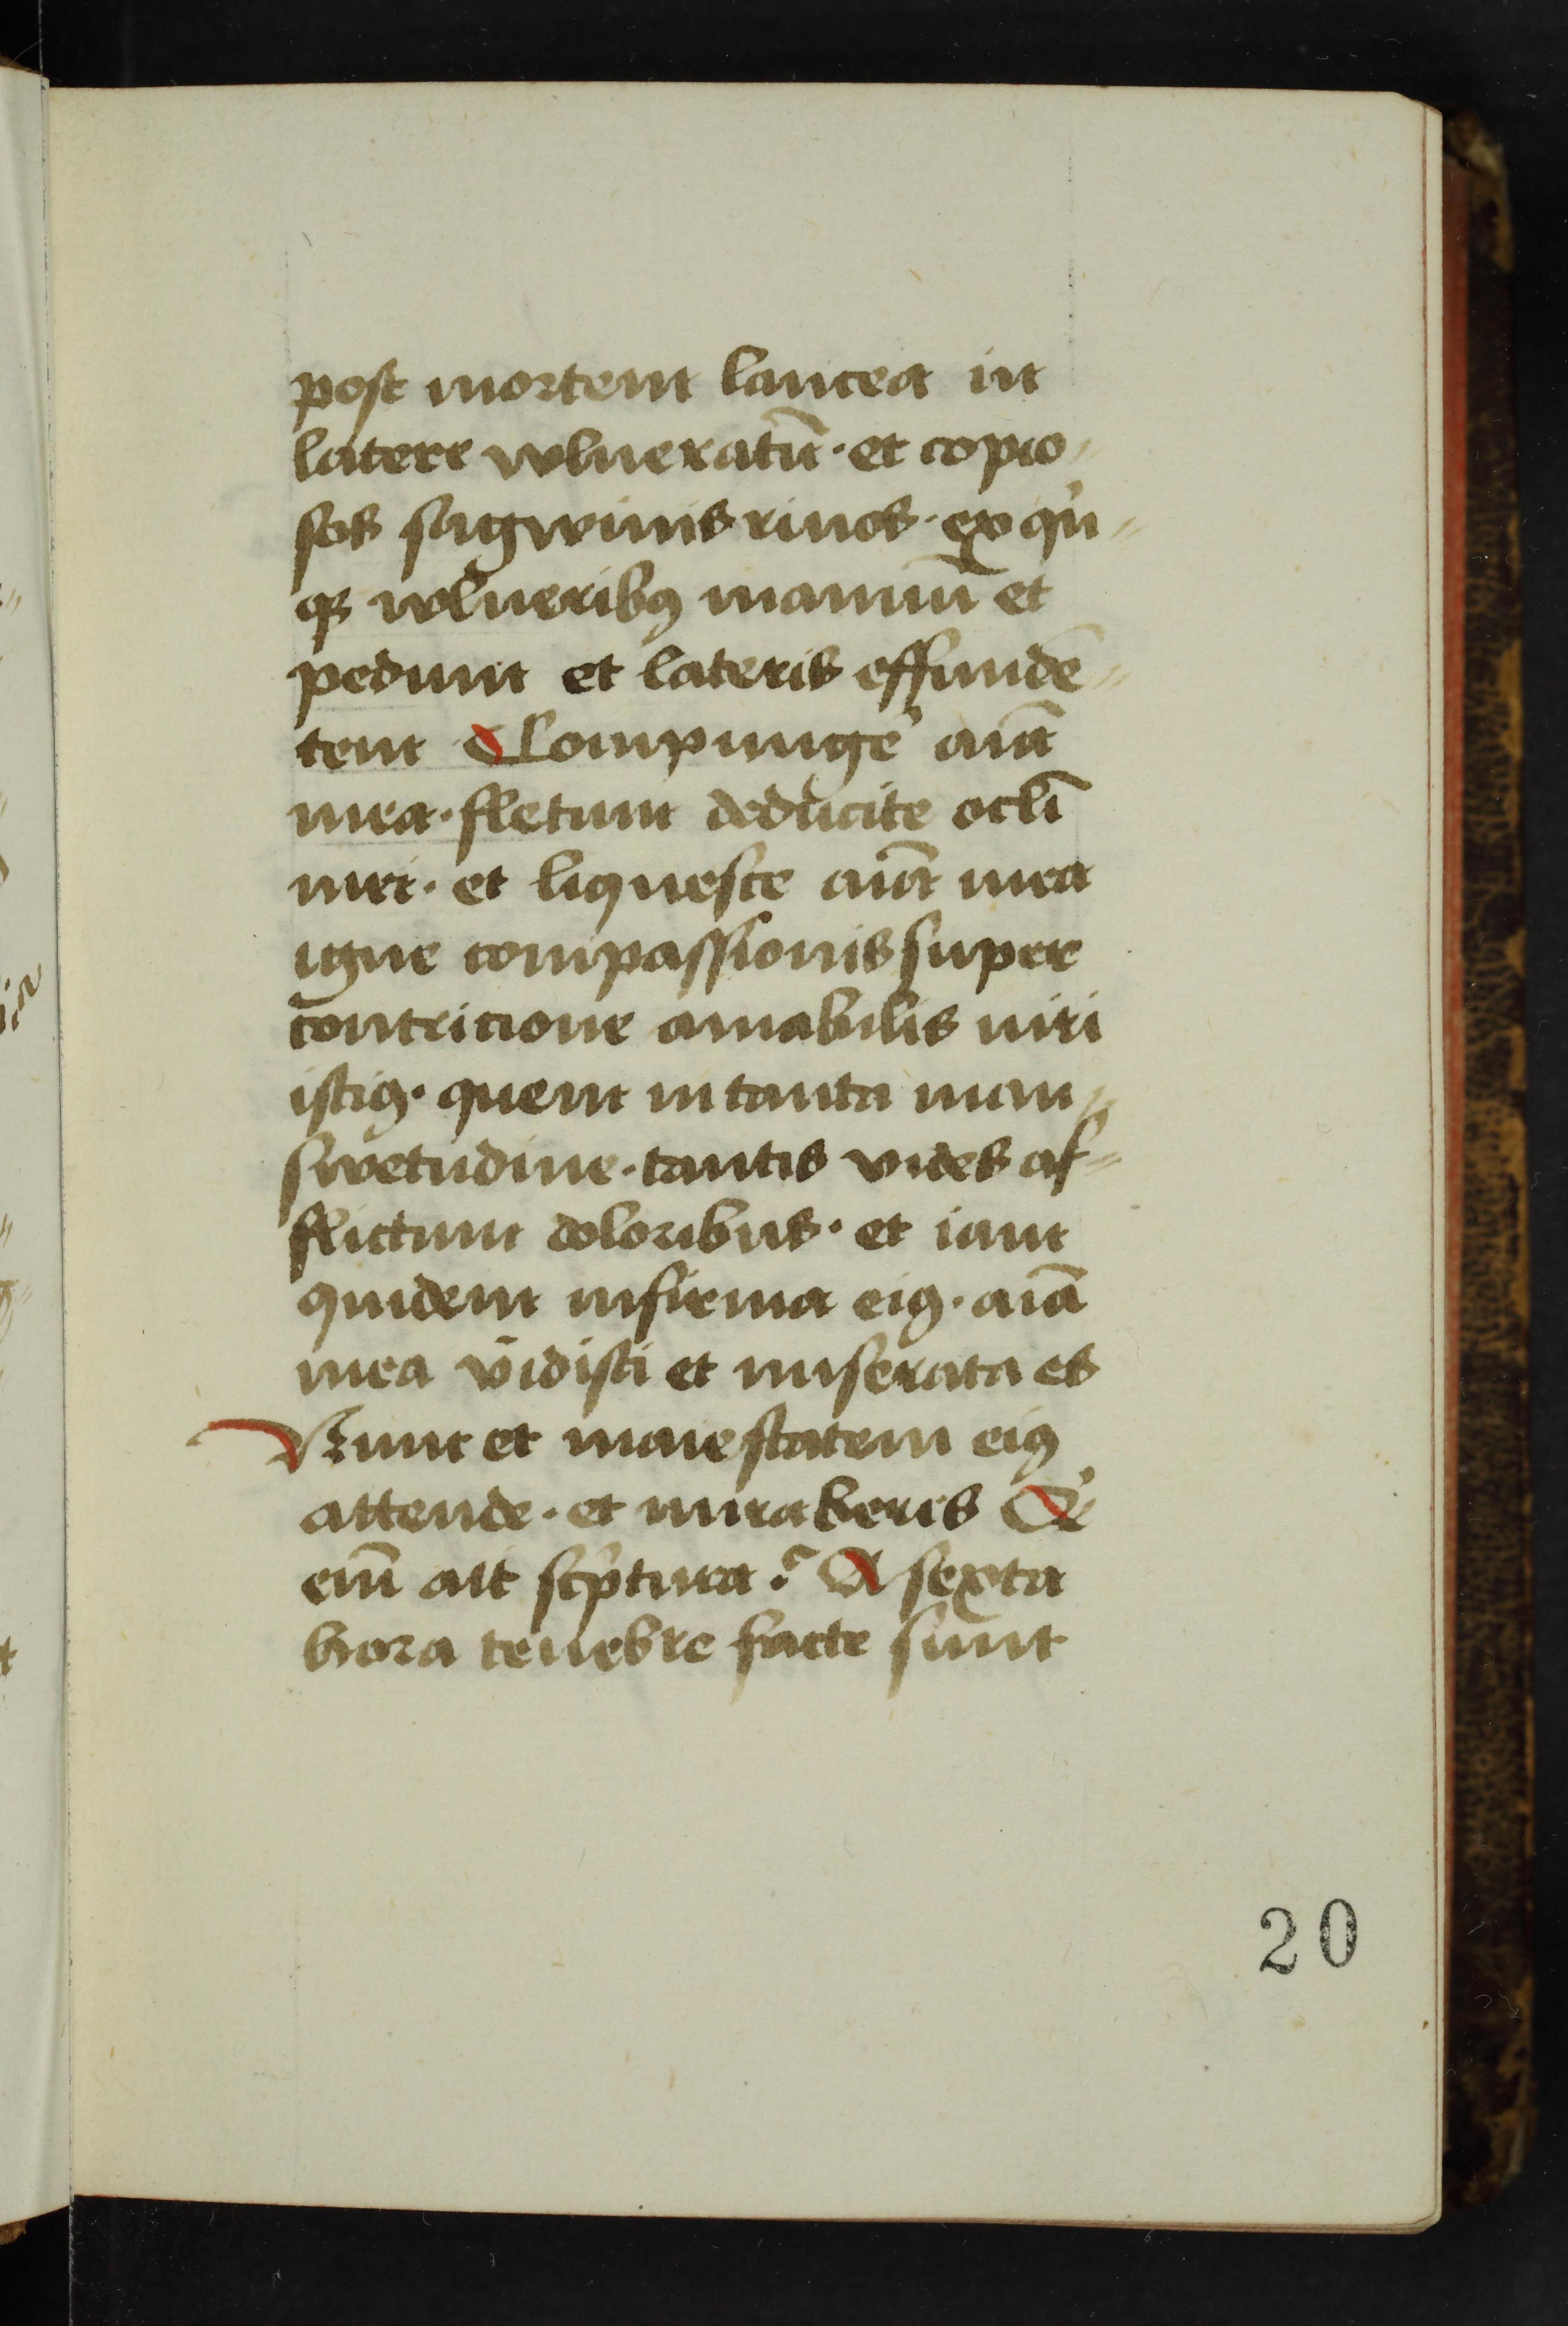 post mortem lancea in
latere vulneratū · et copio〃
sos sagwinis riuos · ex qͥn〃
qꝫ vulneribꝰ manuū et
pedum et lateris effundē〃
tem Compunge' aīa
mea · fletum deducite oclī
mei · et liquesce aīa mea
igne compassionis super
contricione amabilis uiri
istiꝰ · quem in tanta man〃
swetudine · tantis vides af〃
flictum doloribus · et iam
quidem infirma eiꝰ · aīa
mea vidisti et miserata es
Nunc et maiestatem eiꝰ
attende · et miraberis Qͥ
enī ait scp'tura ? A sexta
hora tenebre facte sunt
20